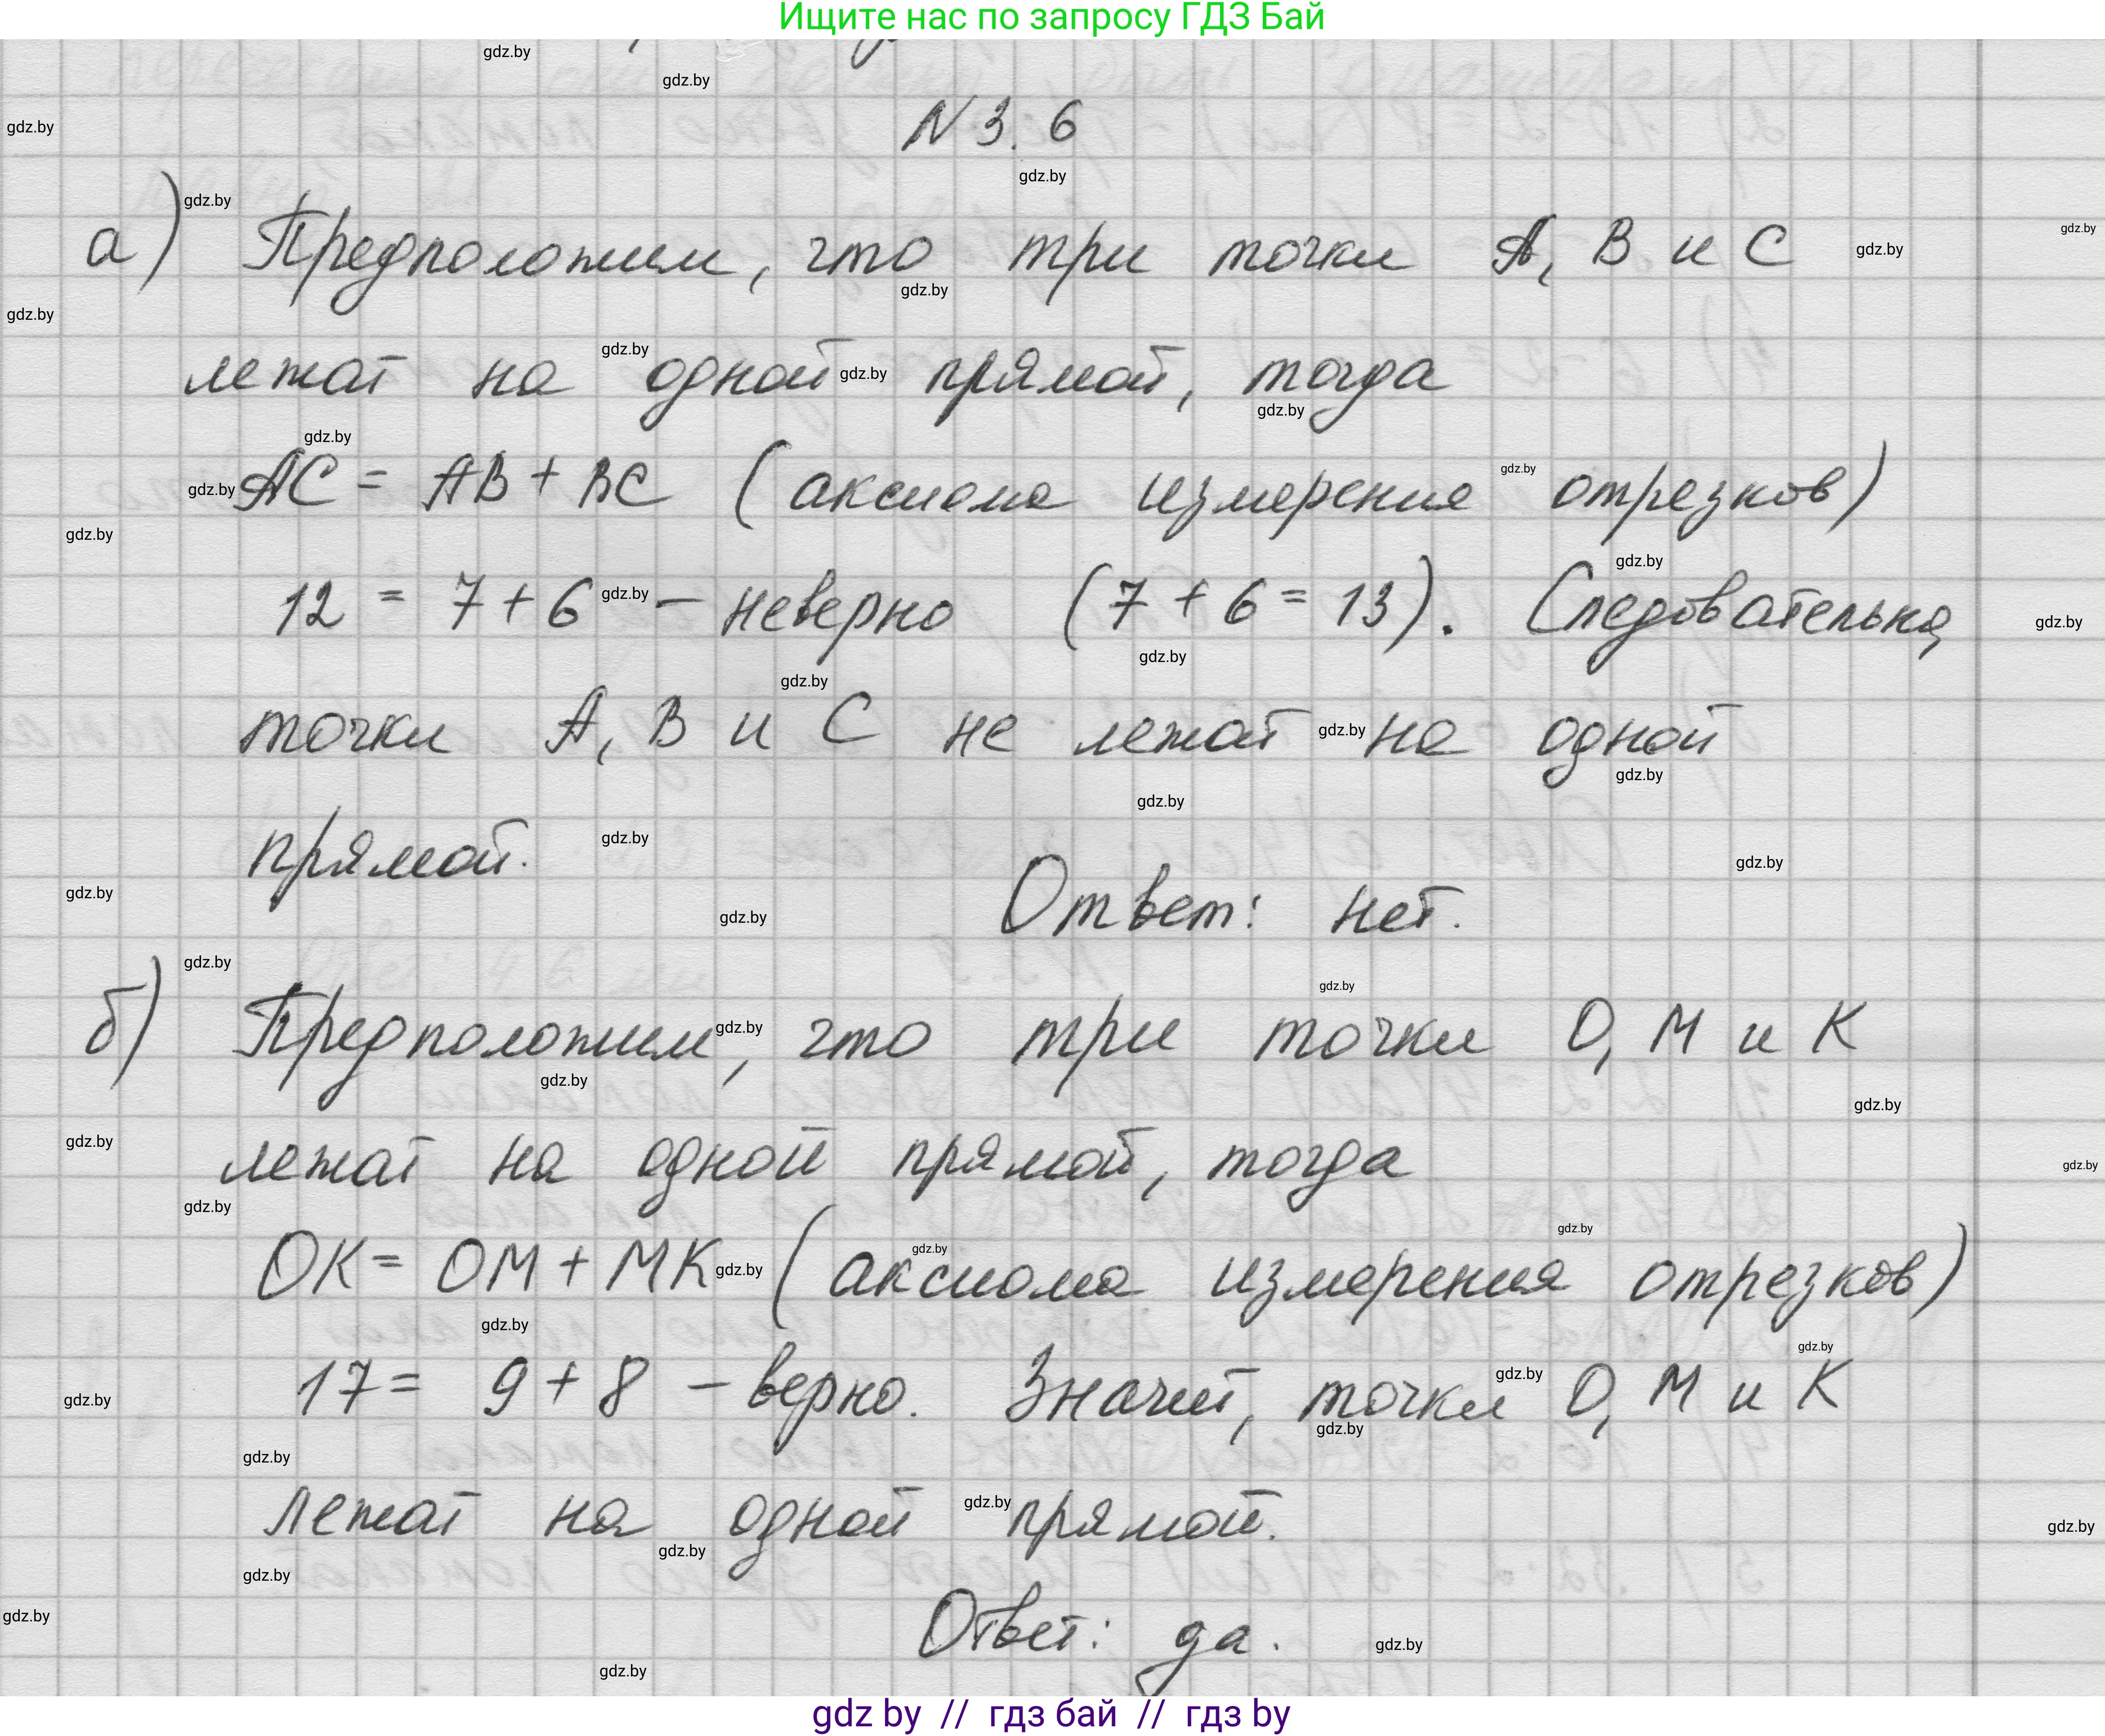 Ищите нас по запросу ГДЗ Бай
N 3.6
а) Предположим, что три точки A, B и C
лежат на одной прямой, тогда
AC = AB + BC (аксиома измерения отрезков)
12 = 7 + 6 – неверно (7 + 6 = 13). Следовательно,
точки A, B и C не лежат на одной
прямой.
Ответ: нет.
б) Предположим, что три точки O, M и K
лежат на одной прямой, тогда
OK = OM + MK (аксиома измерения отрезков)
17 = 9 + 8 – верно. Значит, точки O, M и K
лежат на одной прямой.
Ответ: да.
gdz by // гдз бай // gdz by